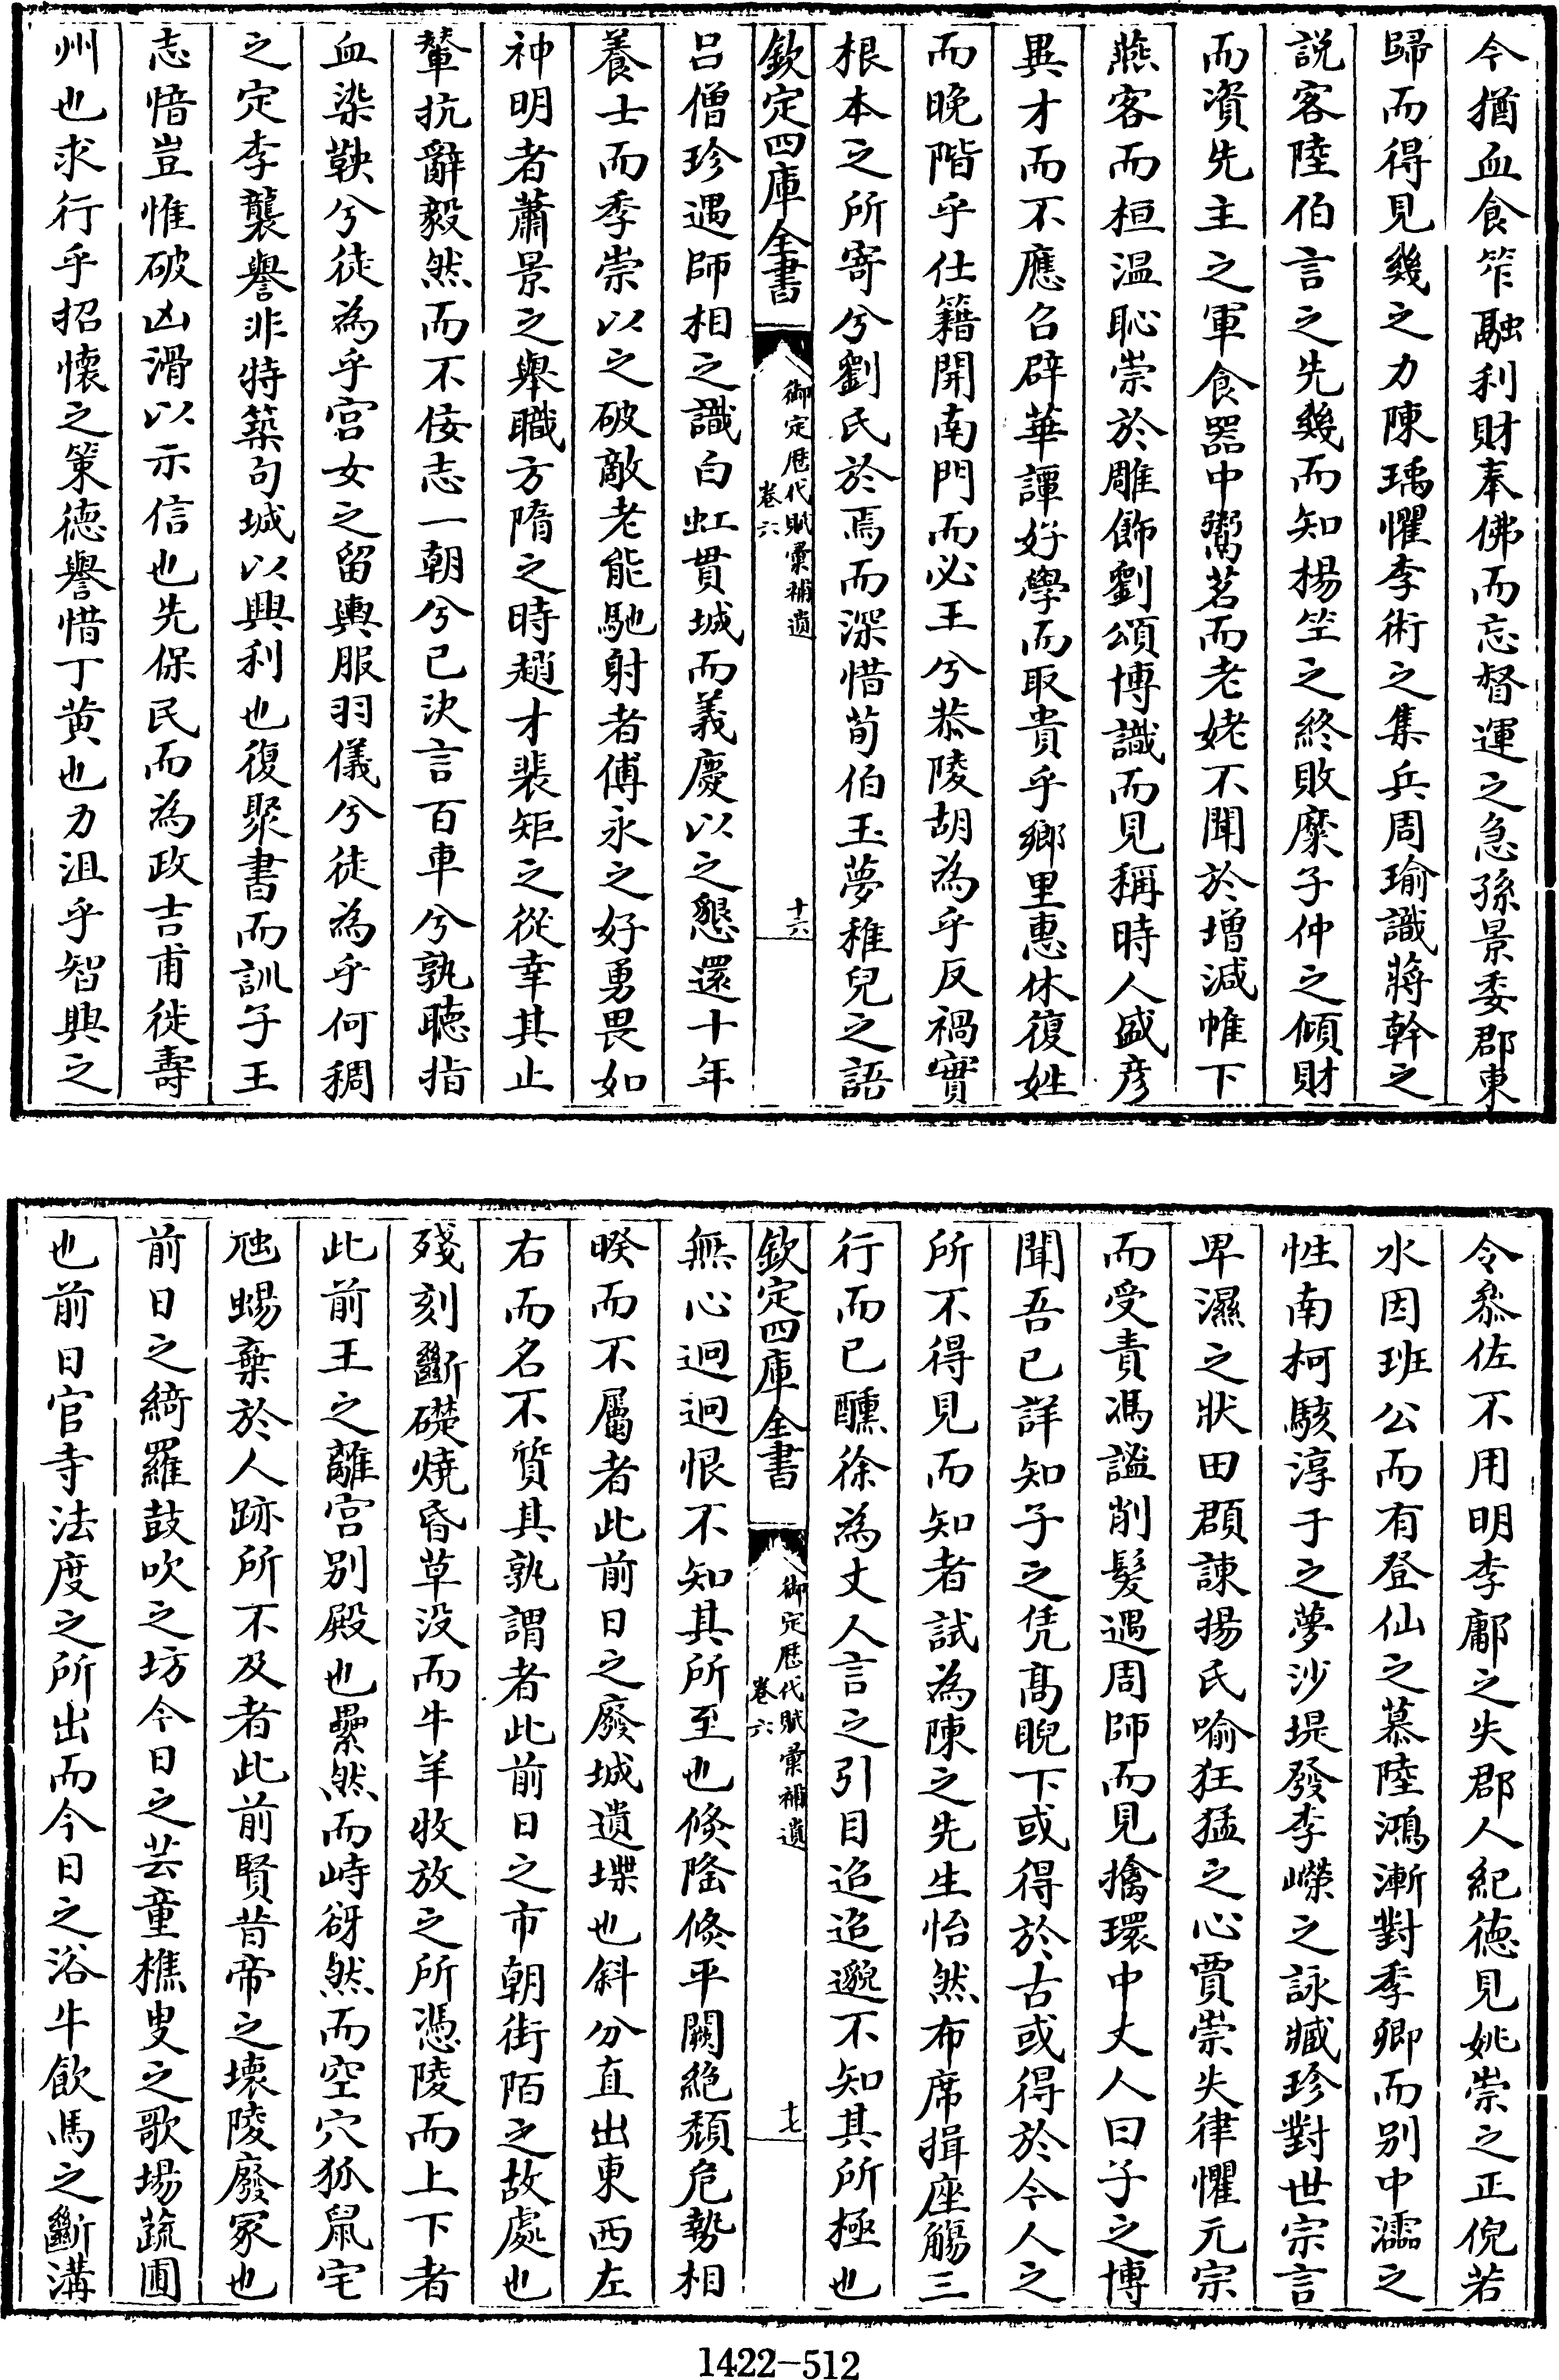 今猶血食笮融利財奉佛而忘督運之急孫景委郡東
歸而得見幾之力陳瑀懼李術之集兵周瑜識蔣幹之
説客陸伯言之先幾而知楊竺之終敗糜子仲之傾財
而資先主之軍食器中鬻茗而老姥不聞於增減帷下
燕客而桓温恥崇於雕飾劉頌博識而見稱時人盛彦
異才而不應召辟華譚好學而取貴乎鄉里惠休復姓
而晚階乎仕籍開南門而必王兮恭陵胡為乎反禍實
根本之所寄兮劉氏於焉而深惜荀伯玉夢稚兒之語
欽定四庫全書
御定歴代賦彙補遺
卷六
十六
吕僧珍遇師相之識白虹貫城而義慶以之懇還十年
養士而季崇以之破敵老能馳射者傅永之好勇畏如
神明者蕭景之舉職方隋之時趙才裴矩之從幸其止
輦抗辭毅然而不佞志一朝兮已決言百車兮孰聽指
血染鞅兮徒為乎宫女之留輿服羽儀兮徒為乎何稠
之定李襲譽非特築句城以興利也復聚書而訓子王
志愔豈惟破凶滑以示信也先保民而為政吉甫徙壽
州也求行乎招懷之策德譽惜丁黄也力沮乎智興之
令叅佐不用明李鄘之失郡人紀德見姚崇之正倪若
水因班公而有登仙之慕陸鴻漸對季卿而别中濡之
性南柯駭淳于之夢沙堤發李嶸之詠臧珍對世宗言
卑濕之狀田頵諫揚氏喻狂猛之心賈崇失律懼元宗
而受責馮謐削髮遇周師而見擒環中丈人曰子之博
聞吾已詳知子之凭髙睨下或得於古或得於今人之
所不得見而知者試為陳之先生怡然布席揖座觴三
行而已醺徐為丈人言之引目迢迢邈不知其所極也
欽定四庫全書
御定歴代賦彙補遺
卷六
十七
無心迥迥恨不知其所至也倐隆倐平闕絶頽危勢相
暌而不屬者此前日之廢城遺堞也斜分直出東西左
右而名不質其孰謂者此前日之市朝街陌之故處也
殘刻斷礎燒昏草没而牛羊牧放之所憑陵而上下者
此前王之離宫别殿也纍然而峙谺然而空穴狐鼠宅
虺蜴棄於人跡所不及者此前賢昔帝之壊陵廢冢也
前日之綺羅鼓吹之坊今日之芸童樵叟之歌場蔬圃
也前日官寺法度之所出而今日之浴牛飲馬之斷溝
1422-512